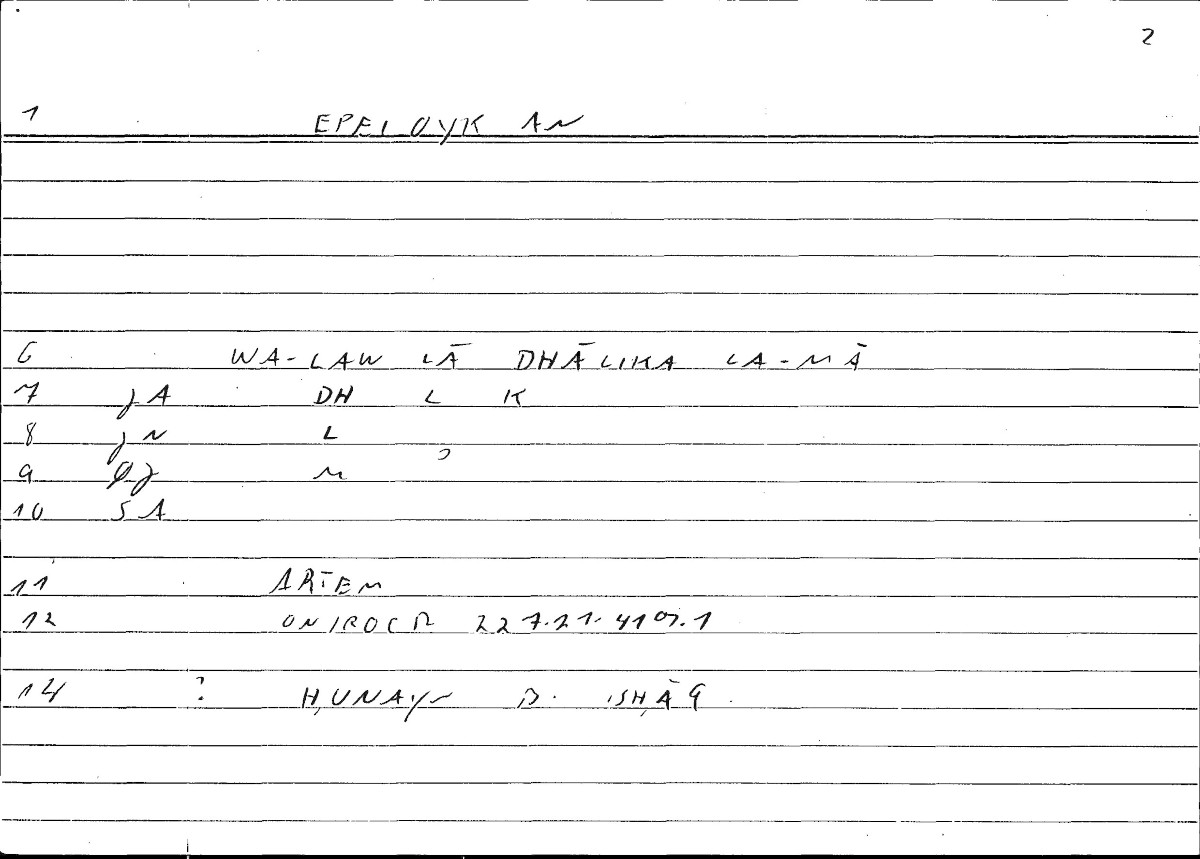 2
1 EPEI OYK AN
6 WA-LAW LĀ DHĀLIKA LA-MĀ
7 JA DH L K
8 JN L
9 QJ M
10 SA
11 ARTEM
12 ONIROCR 227.21.
14 ? ḤUNAYN B. ISḤĀQ